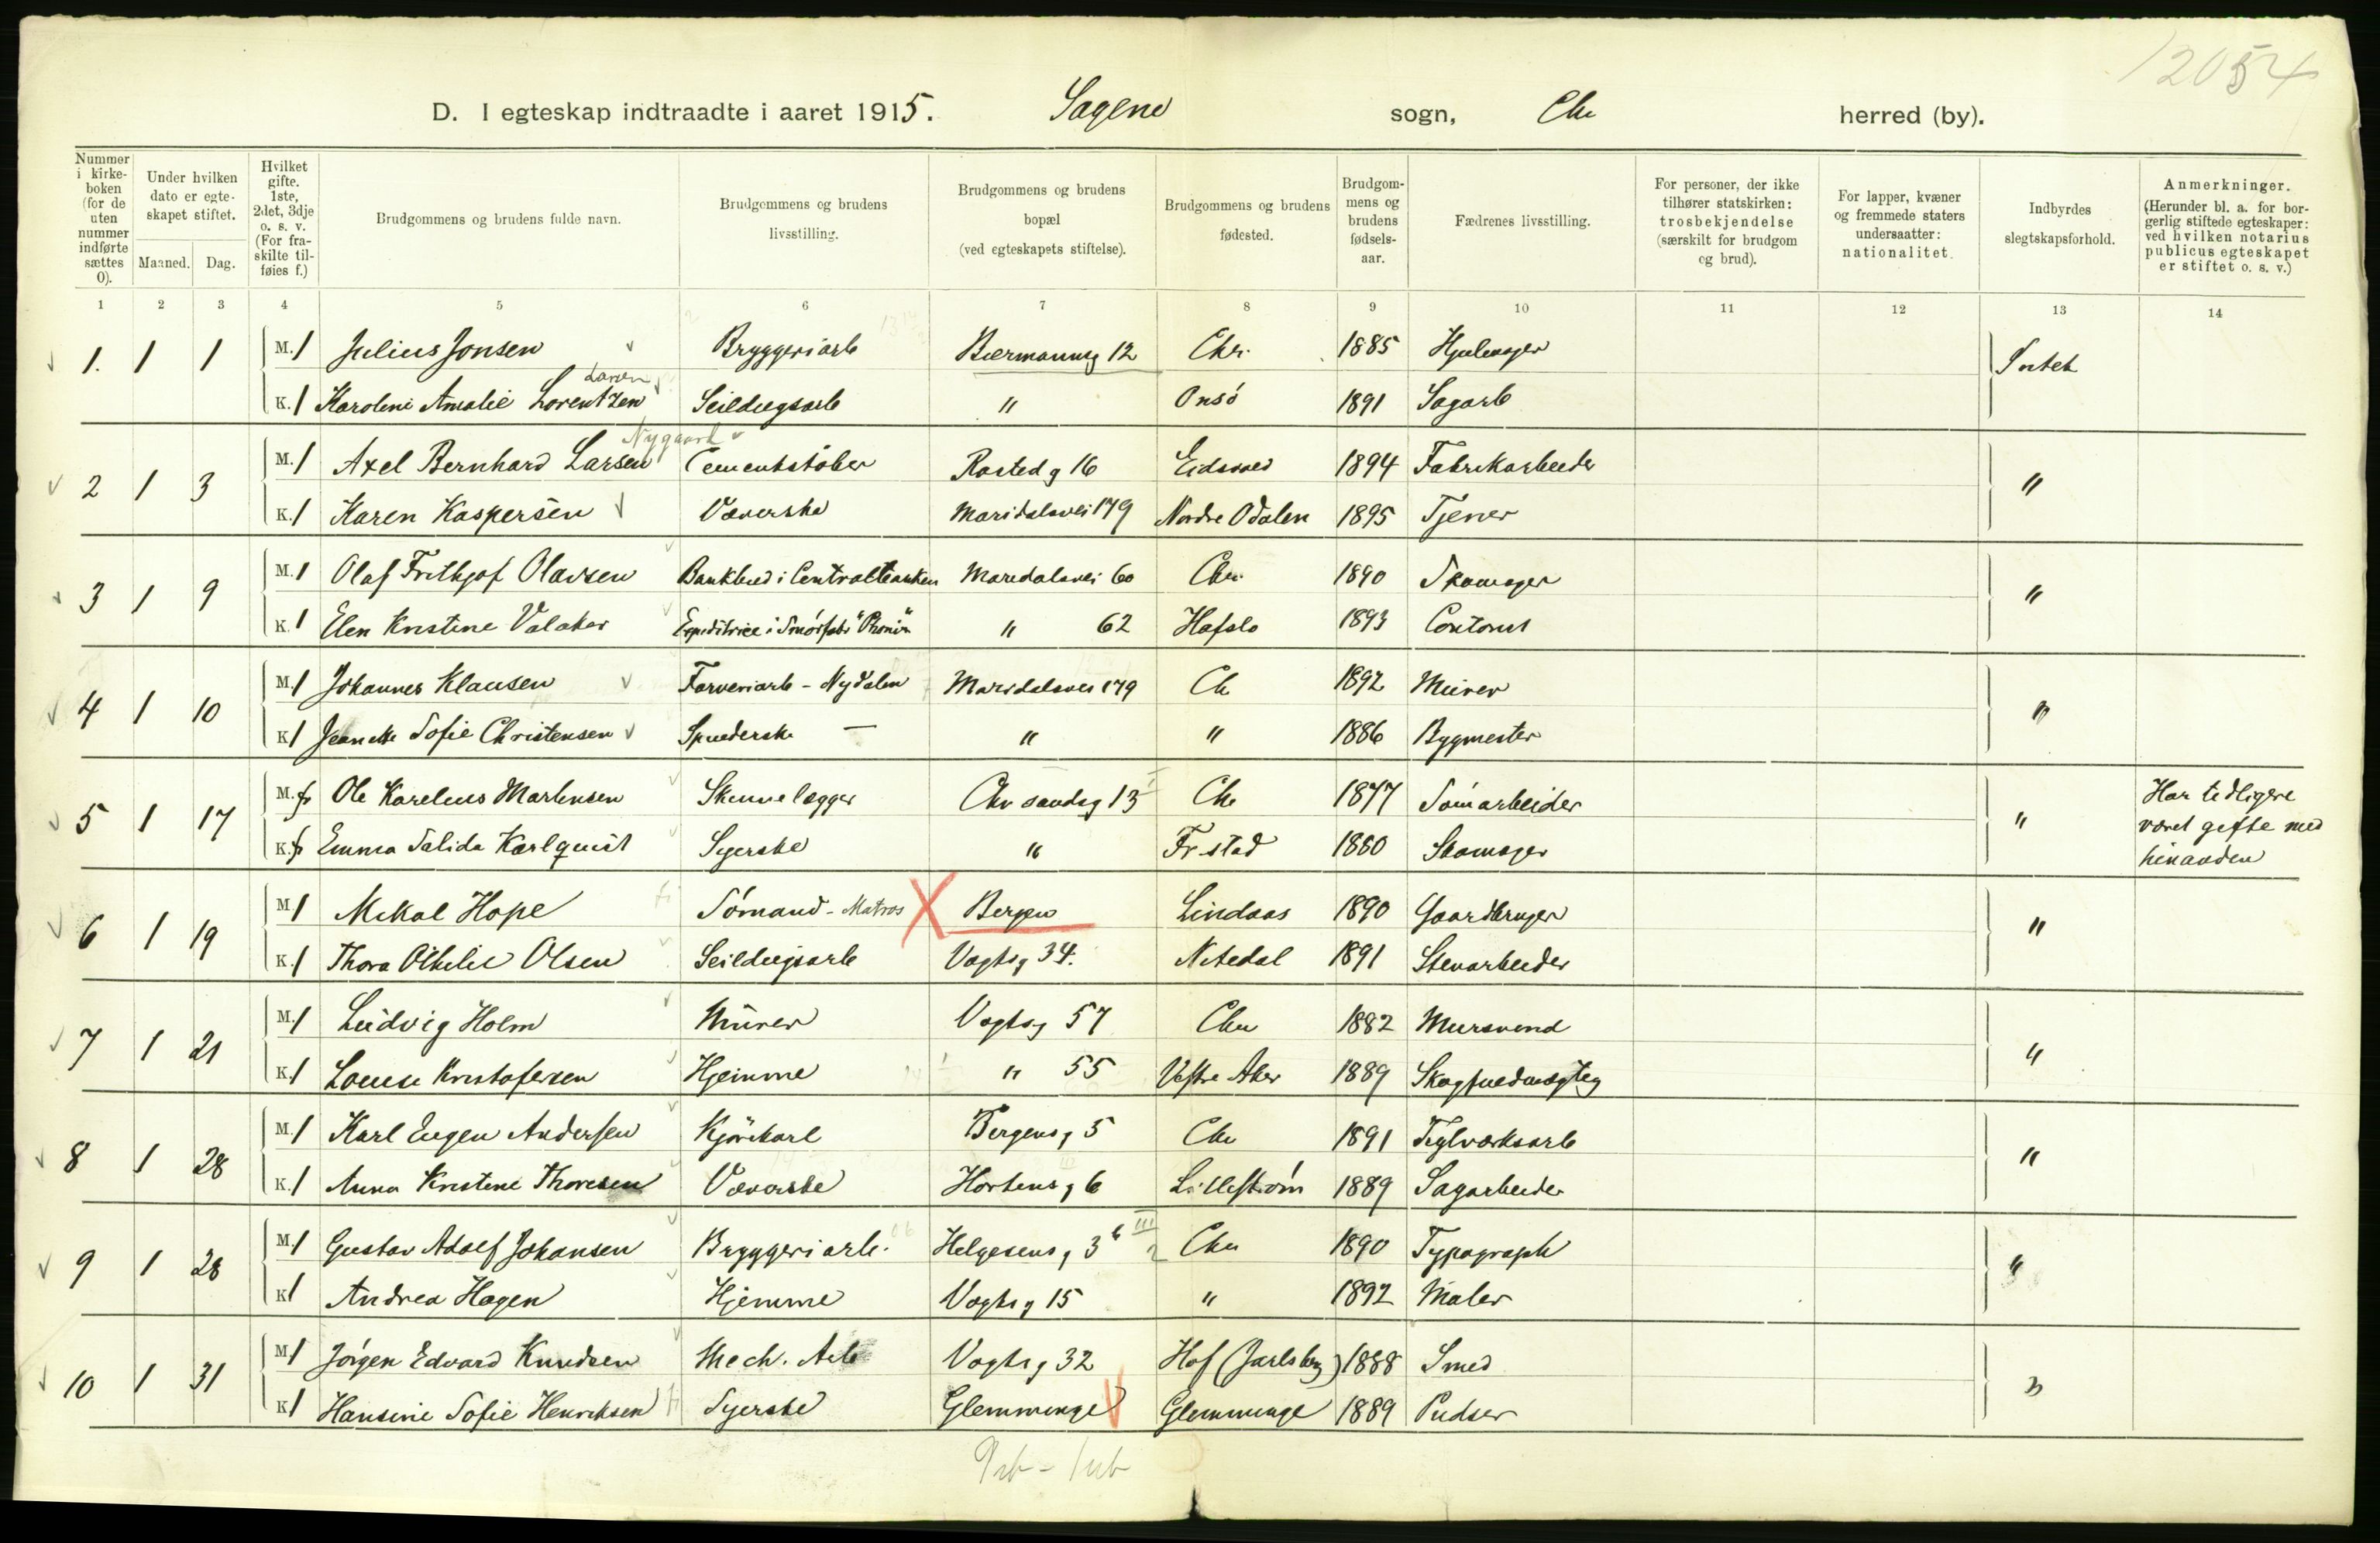 12054
D. I egteskap indtraadte i aaret 1915. Sagene sogn, Chr herred (by).
Nummer i kirke-boken (for de uten nummer indførte sættes 0).
Under hvilken dato er egte-skapet stiftet.
Maaned. Dag.
Hvilket gifte. 1ste, 2det, 3dje o. s. v. (For fra-skilte til-føies f.)
Brudgommens og brudens fulde navn.
Brudgommens og brudens livsstilling.
Brudgommens og brudens bopæl (ved egteskapets stiftelse).
Brudgommens og brudens fødested.
Brudgom-mens og brudens fødsels-aar.
Fædrenes livsstilling.
For personer, der ikke tilhører statskirken: trosbekjendelse (særskilt for brudgom og brud).
For lapper, kvæner og fremmede staters undersaatter: nationalitet.
Indbyrdes slegtskapsforhold.
Anmerkninger. (Herunder bl. a. for bor-gerlig stiftede egteskaper: ved hvilken notarius publicus egteskapet er stiftet o. s. v.)
1 2 3 4 5 6 7 8 9 10 11 12 13 14
1. 1 1 M. 1 Julius Jonsen Bryggeriarb Biermannsg 12 Chr. 1885 Hjulmager Intet
Larsen
K. 1 Karoline Amalie Lorentzen Seildugsarb " Onsö 1891 Sagarb
Nygaard
2 1 3 M. 1 Axel Bernhard Larsen Cementstöber Rostedg 16 Eidsvold 1894 Fabrikarbeider "
K. 1 Karen Kaspersen Væverske Maridalsvei 179 Nordre Odalen 1895 Tjener
3 1 9 M. 1 Olaf Frithjof Olavsen Bankbud i Centralbanken Maridalsvei 60 Chr. 1890 Skomager "
K. 1 Elen Kristine Valaker Expeditrice i Smörfabr "Phönix" " 62 Hafslo 1893 Contorist
4 1 10 M. 1 Johannes Klausen Farveriarb - Nydalen Maridalsvei 179 Ch 1892 Murer "
K. 1 Jeanette Sofie Christensen Spinderske — " " 1886 Bygmester
5 1 17 M. f Ole Karelius Martinsen Skinnelægger Chr sandsg 13 Chr 1877 Tömarbeider " Har tidligere
været gifte med
K. f Emma Salida Karlquist Syerske " Fr.stad 1880 Skomager hinanden
6 1 19 M. 1 Mikal Hope Sömand - Matros X Bergen Lindaas 1890 Gaardbruger "
K. 1 Thora Othilie Olsen Seildugsarb Vogtsg 34. Nitedal 1891 Stenarbeider
7 1 21 M. 1 Ludvig Holm Murer Vogtsg 57 Chr 1882 Mursvend "
K. 1 Louise Kristofersen Hjemme " 55 Vestre Aker 1889 Skogfuldmægtig
8 1 28 M. 1 Karl Eugen Andersen Kjörekarl Bergensg 5 Chr 1891 Teglværksarb "
K. 1 Anna Kristine Thoresen Væverske Hortensg 6 Lilleström 1889 Sagarbeider
9 1 28 M. 1 Gustav Adolf Johansen Bryggeriarb. Helgesensg 36 III Chr 1890 Typograph "
K. 1 Andrea Hagen Hjemme Vogtsg 15 " 1892 Maler
10 1 31 M. 1 Jörgen Edvard Knudsen Mech. Arb Vogtsg 32 Hof (Jarlsberg) 1888 Smed "
K. 1 Hansine Sofie Henriksen Syerske Glemminge Glemminge 1889 Pudser